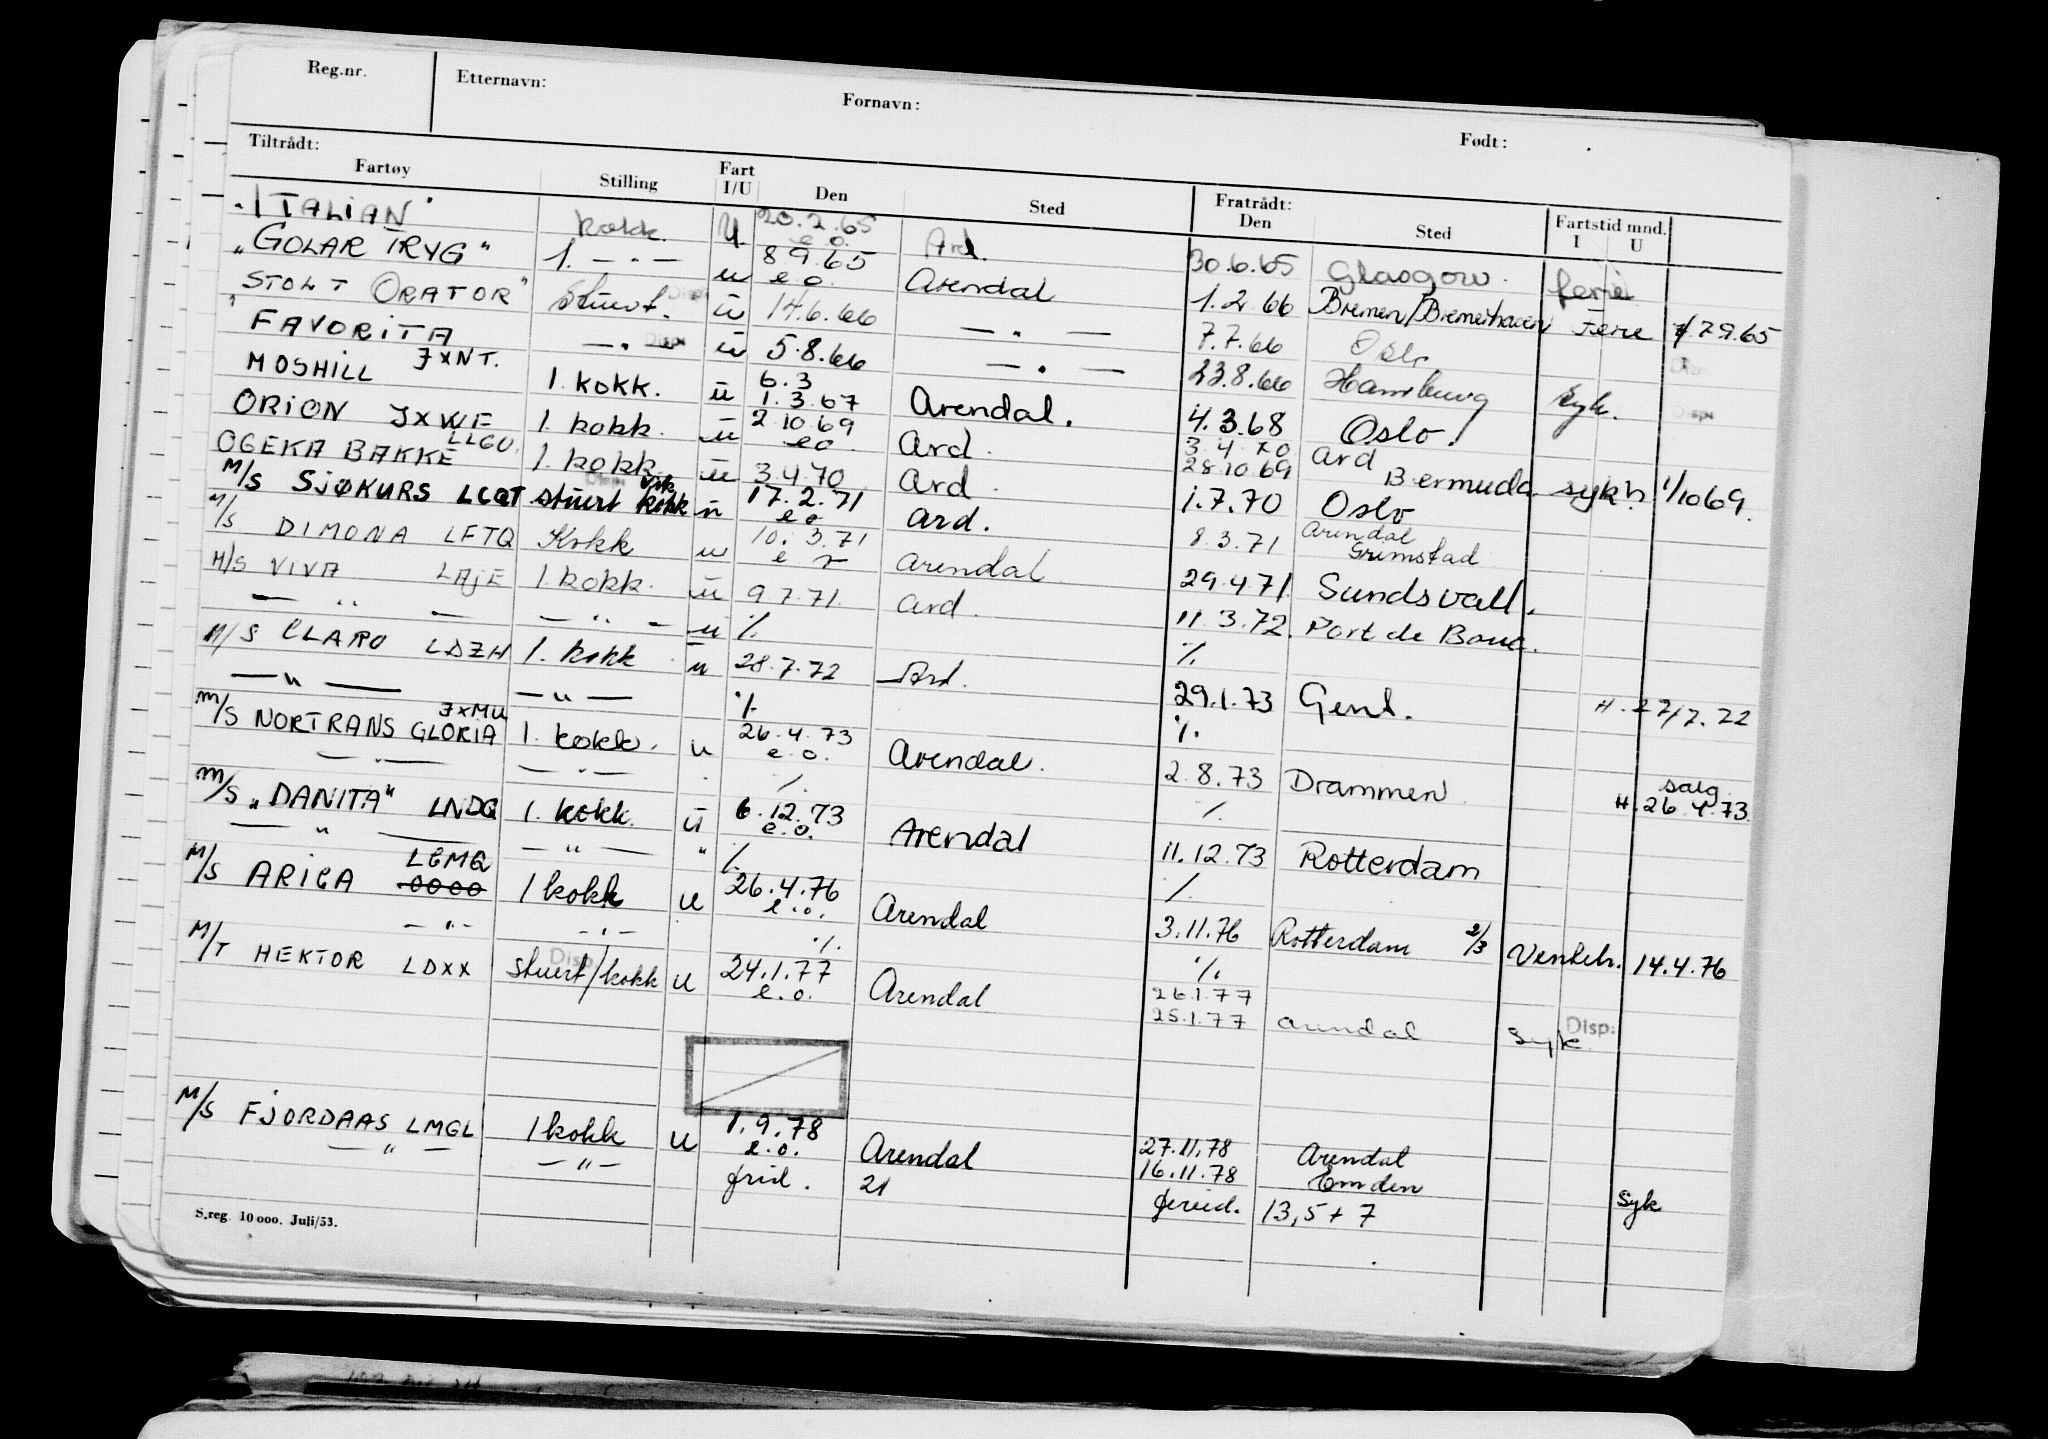 Reg.nr. Etternavn: Fornavn: Født:
Tiltrådt: Fratrådt:
Fartøy Stilling Fart I/U Den Sted Den Sted Fartstid mnd. I U
"ITALIAN" kokk U 20.2.65 e.o. Ard. 30.6.65 Glasgow. ferie
"GOLAR TRYG" 1. — " — u 8.9.65 e o. Arendal 1.2.66 Bremen/Bremerhaven Ferie 7.9.65
"STOLT ORATOR" Stuert. Disp u 14.6.66 — " — 7.7.66 Oslo
FAVORITA — " — Disp u 5.8.66 — " — 23.8.66 Hamburg Syk. Disp
MOSHILL JXNT. 1. kokk. u 6.3 1.3.67 Arendal. 4.3.68 Oslo.
ORION JXWE 1. kokk. u 2.10.69 e o Ard. 3.4.70 Ard 28.10.69 Bermuda sykh. 1/10 69.
OGEKA BAKKE LLGU. 1. kokk u 3.4.70 Ard. 1.7.70 Oslo
M/S SJØKURS LCQT stuert kokk Disp u 17.2.71 e o Ard. 8.3.71 Arendal Grimstad
M/S DIMONA LFTQ Kokk u 10.3.71 Arendal 29.4.71 Sundsvall.
M/S VIVA LAJE 1. kokk. u 9.7.71 Ard. 11.3.72. Port de Bouc.
— " — — " — u % %
M/S CLARO LDZH 1. kokk u 28.7.72 Ard. 29.1.73 Gent. H. 27/7.72
— " — — " — % %
M/S NORTRANS GLORIA JXMU 1. kokk. u 26.4.73 e.o. Arendal. 2.8.73 Drammen salg H. 26.4.73.
— " — — " — % %
M/S "DANITA" LNDQ 1. kokk. u 6.12.73 e.o. Arendal 11.12.73 Rotterdam
— " — — " — " % %
M/S ARICA LGMQ 1 kokk u 26.4.76 e.o. Arendal 3.11.76 Rotterdam 2/3 Ventet. 14.4.76
— " — — " — % %
M/T HEKTOR LDXX Stuert/kokk Disp u 24.1.77 e.o. Arendal 26.1.77
25.1.77 Arendal Syk Disp:
M/S FJORDAAS LMGL 1 kokk u 1.9.78 e.o. Arendal 27.11.78 Arendal
— " — — " — 16.11.78 Emden Syk
frid. 21 feried. 13,5 + 7
S.reg. 10 000. Juli/53.